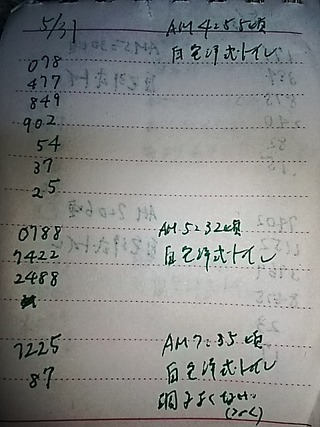 5/31 AM 4:55頃
自宅洋式トイレ
078
477
849
902
54
37
25
0788 AM 5:32頃
7422 自宅洋式トイレ
2488
7225 AM 7:35頃
87 自宅洋式トイレ